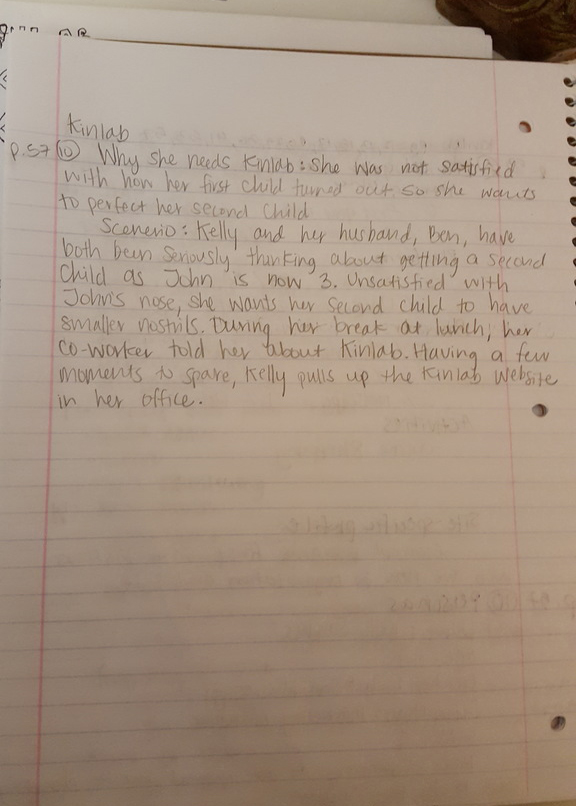 Kinlab
p.57 (10) Why she needs Kinlab: She was not satisfied
with how her first child turned out so she wants
to perfect her second child
Scenerio: Kelly and her husband, Ben, have
both been seriously thinking about getting a second
child as John is now 3. Unsatisfied with
John's nose, she wants her second child to have
smaller nostrils. During her break at lunch, her
co-worker told her about Kinlab. Having a few
moments to spare, Kelly pulls up the Kinlab website
in her office.